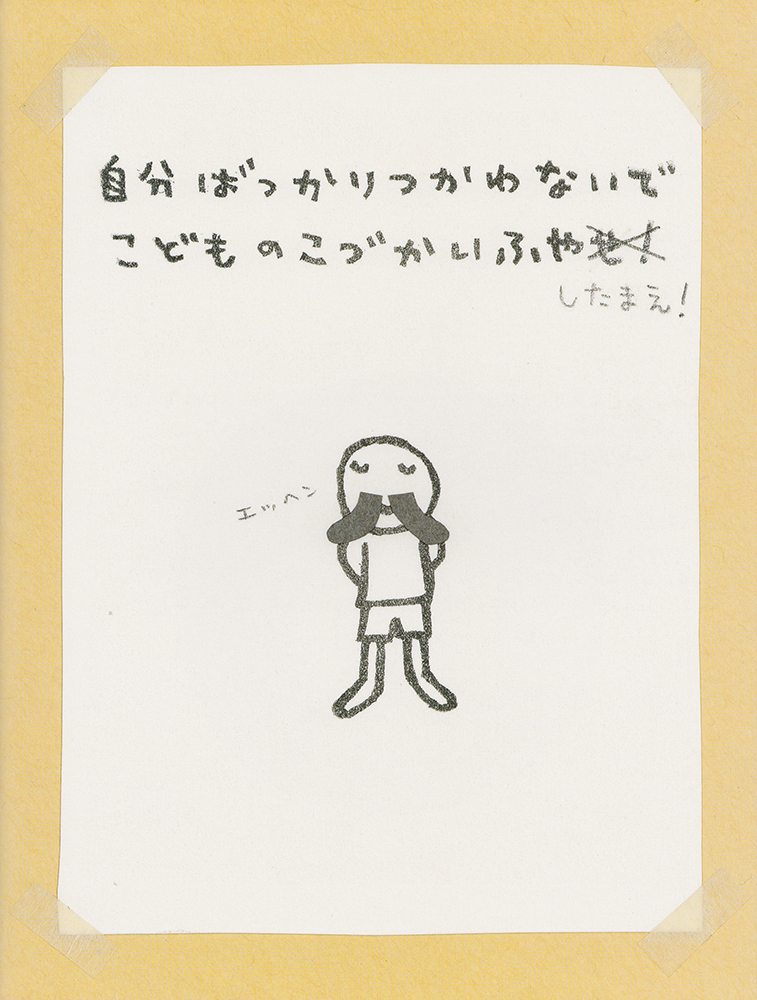 自分ばっかりつかわないで
こどものこづかいふやせ!
したまえ!
エッヘン